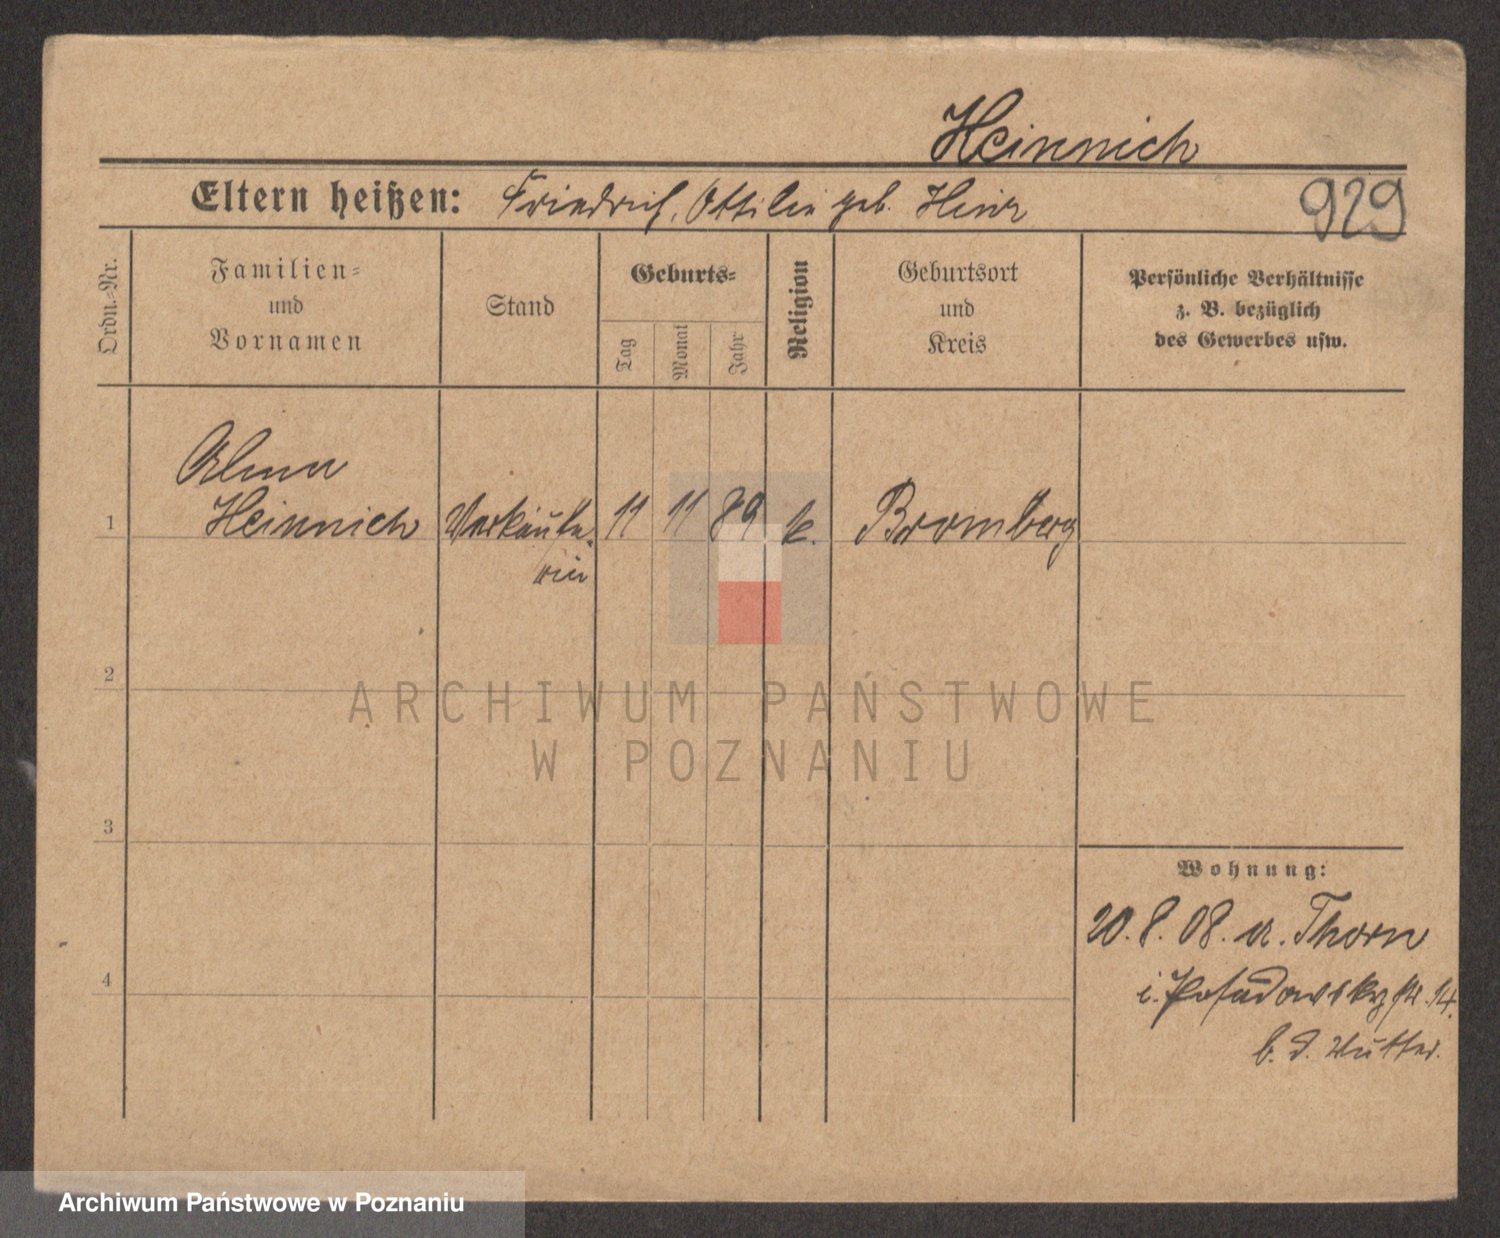 Heinrich
Eltern heißen: Friedrich, Ottilie geb.
929
Ordn.-Nr.
Familien-
und
Vornamen
Stand
Geburts-
Tag
Monat
Jahr
Religion
Geburtsort
und
Kreis
Persönliche Verhältnisse
z. B. bezüglich
des Gewerbes usw.
Alma
1 Heinrich Verkäufe- 11 11 89 k. Bromberg
rin
2
ARCHIWUM PAŃSTWOWE
W POZNANIU
3
Wohnung:
20.8.08. a. Thorn
4 i. Posadowskystr. 14.
b. d. Mutter.
Archiwum Państwowe w Poznaniu